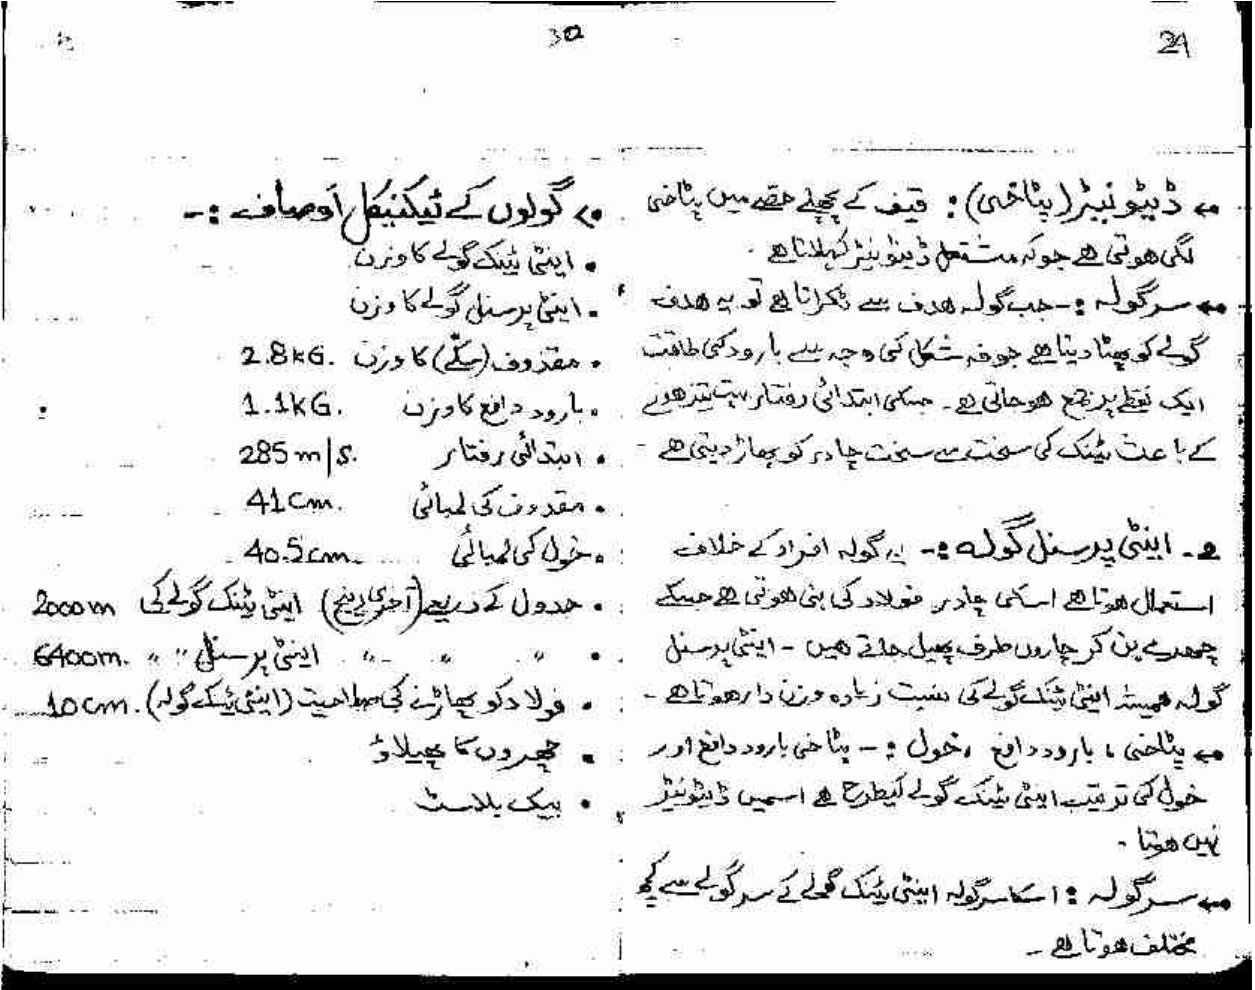 29
← ڈیٹونیٹر (پٹاخی): قیف کے پچھلے حصے میں پٹاخی
لگی ھوتی ھے جوکہ مشتعل ڈیٹونیٹر کہلاتا ھے۔
← سرگولہ :- جب گولہ ھدف سے ٹکراتا ھے تو یہ ھدف
گولے کو پھٹا دیتا ھے جوفہ شکل کی وجہ سے بارود کی طاقت
ایک نقطے پر جمع ھوجاتی ھے۔ جسکی ابتدائی رفتار بہت تیز ھونے
کے باعث ٹینک کی سخت سے سخت چادر کو پھاڑ دیتی ھے -
2- اینٹی پرسنل گولہ :- یہ گولہ افراد کے خلاف
استعمال ھوتا ھے اسکی چادر فولاد کی بنی ھوتی ھے جسکے
چھرے بن کر چاروں طرف پھیل جاتے ھیں - اینٹی پرسنل
گولہ ھمیشہ اینٹی ٹینک گولے کی نسبت زیادہ وزن دار ھوتا ھے -
← پٹاخی ، بارود دافع ، خول :- پٹاخی بارود دافع اور
خول کی ترتیب اینٹی ٹینک گولے کیطرح ھے اسمیں ڈیٹونیٹر
نہیں ھوتا -
← سرگولہ : اسکا سرگولہ اینٹی ٹینک گولے کے سرگولے سے کچھ
مختلف ھوتا ھے -
30
گولوں کے ٹیکنیکل اوصاف :-
• اینٹی ٹینک گولے کا وزن
• اینٹی پرسنل گولے کا وزن
• مقذوف (سکّے) کا وزن 2.8KG.
• بارود دافع کا وزن 1.1KG.
• ابتدائی رفتار 285m/s.
• مقذوف کی لمبائی 41cm.
• خول کی لمبائی 40.5cm.
• جدول کے ذریعے (آخری رینج) اینٹی ٹینک گولے کی 2000m
• " " " " اینٹی پرسنل " " 6400m.
• فولاد کو پھاڑنے کی صلاحیت (اینٹی ٹینک گولہ) 10cm.
• چھروں کا پھیلاؤ
• بیک بلاسٹ